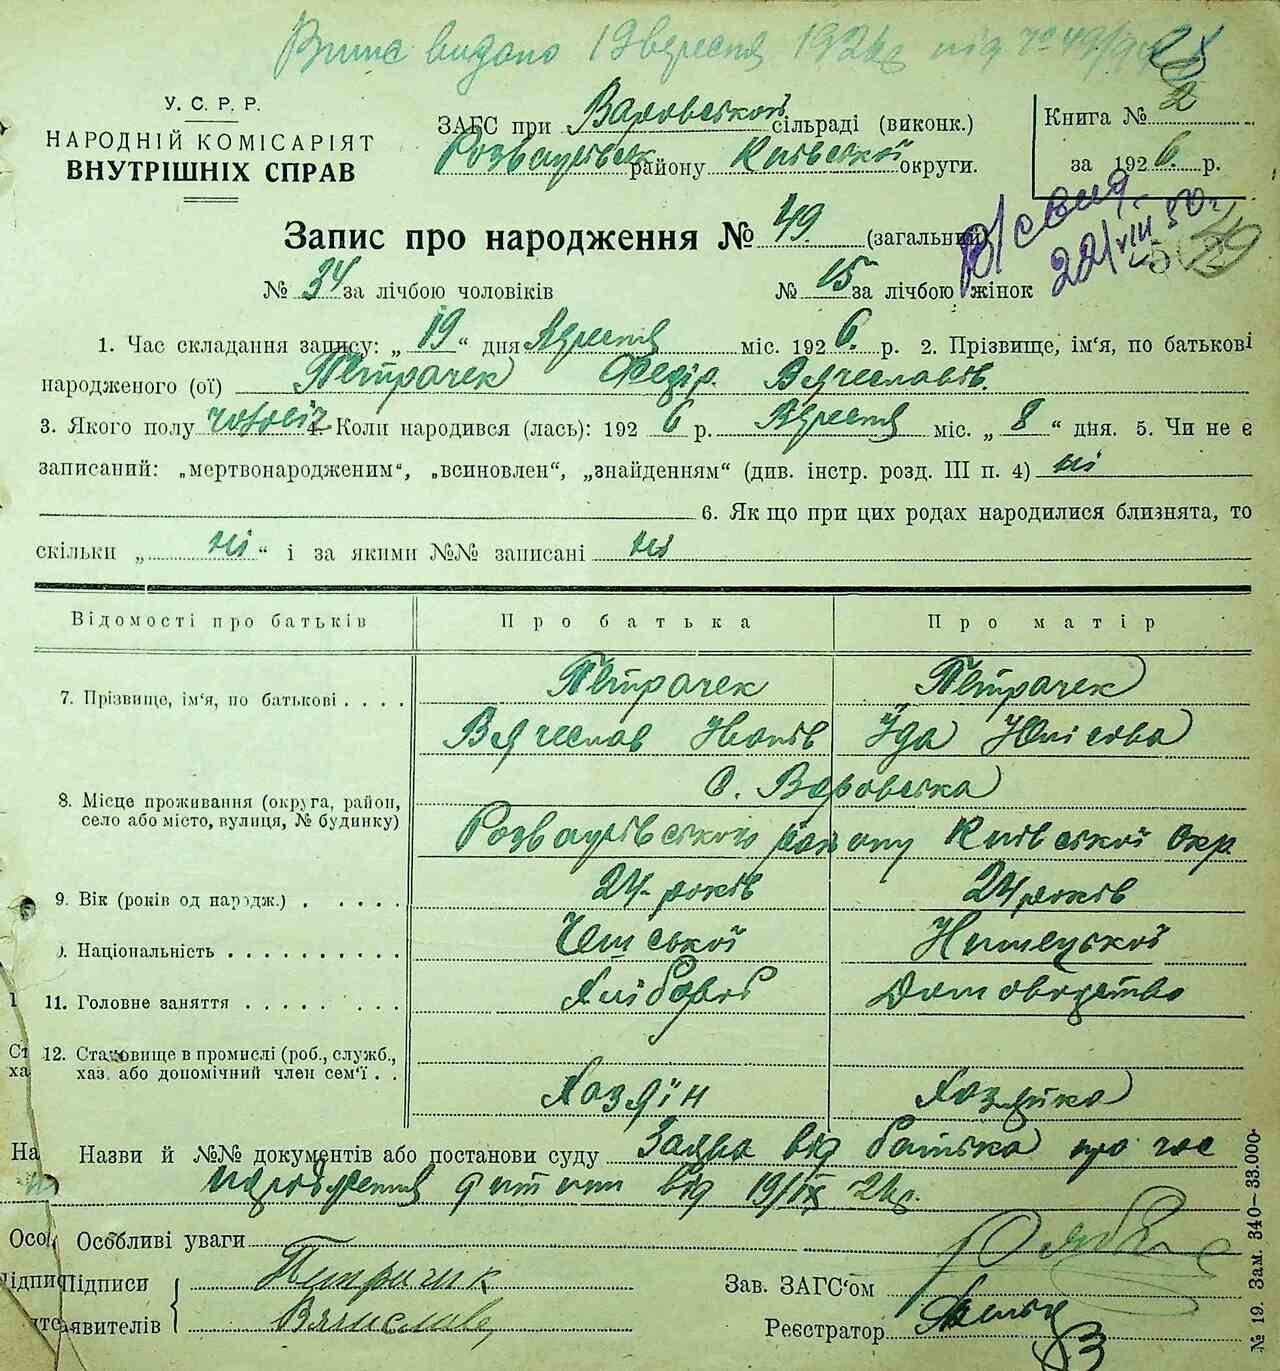 Випис видано 19 вересня 1926 р під № 49/
У. С. Р. Р.
НАРОДНІЙ КОМІСАРІЯТ
ВНУТРІШНІХ СПРАВ
ЗАГС при Варовській сільраді (виконк.)
Розважівськ району Київської округи.
Книга № 2
за 1926. р.
Запис про народження № 49. (загальний)
№ 34 за лічбою чоловіків № 15 за лічбою жінок
22/VIII 50 г.
1. Час складання запису: „ 19 “ дня Вересня міс. 1926. р. 2. Прізвище, ім‘я, по батькові
народженого (ої) Петрачек Федір. Вячеславів.
3. Якого полу чоловіч 4. Коли народився (лась): 1926 р. Вересня міс. „ 8 “ дня. 5. Чи не є
записаний: „мертвонародженим“, „всиновлен“, „знайденням“ (див. інстр. розд. III п. 4) ні
6. Як що при цих родах народилися близнята, то
скільки „ ні “ і за якими №№ записані ні
Відомості про батьків Про батька Про матір
7. Прізвище, ім‘я, по батькові . . . . Петрачек Петрачек
Вячеслав Іванів Іда Юлісова
8. Місце проживання (округа, район, село або місто, вулиця, № будинку) с. Варовська
Розважівського району Київської Окр.
9. Вік (років од народж.) . . . . . 24 років 24 років
). Національність . . . . . . . . . . Чешської Нимецької
1 11. Головне заняття . . . . . . . . Хлібороб Домоводство
Ст 12. Становище в промислі (роб., служб.,
ха хаз. або допомічний член сем‘ї . .
Хазяїн Хазяйка
На Назви й №№ документів або постанови суду Заява від батька про час
народження дитини від 19/IX 26 р.
Осо Особливі уваги
ідпи Підписи Петрачик Зав. ЗАГС‘ом
явителів Вячислав Реєстратор
№ 19. Зам. 340—33.000